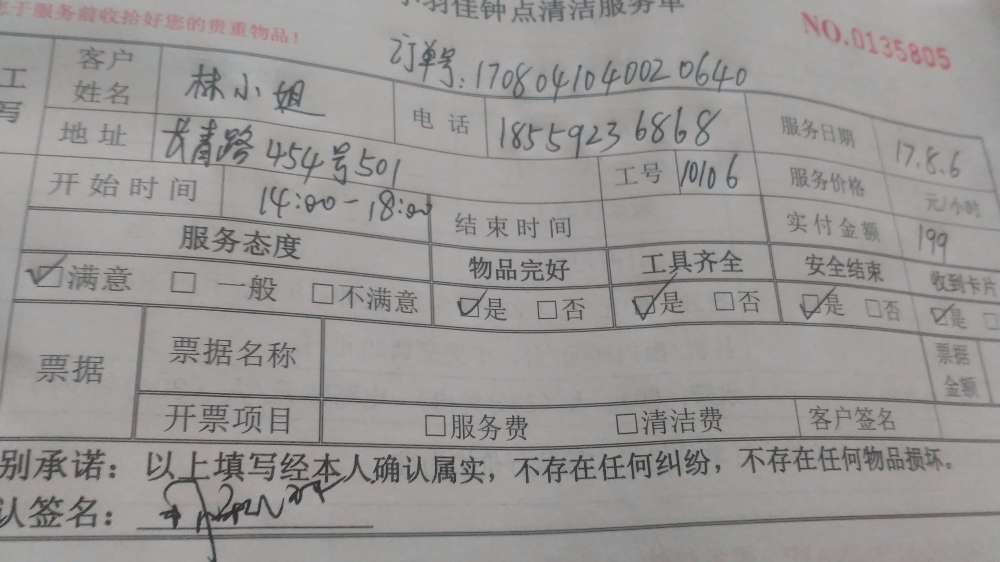 于服务前收拾好您的贵重物品！
羽佳钟点清洁服务单
NO.0135805
订单号:1708041040020640
工
写
客户姓名 林小姐 电话 18559236868 服务日期 17.8.6
地址 长青路454号501 工号 10106 服务价格 元/小时
开始时间 14:00-18:00 结束时间 实付金额 199
服务态度 物品完好 工具齐全 安全结束 收到卡片
☑满意 □一般 □不满意 ☑是 □否 ☑是 □否 ☑是 □否 ☑是 □
票据 票据名称 票据金额
开票项目 □服务费 □清洁费 客户签名
别承诺：以上填写经本人确认属实，不存在任何纠纷，不存在任何物品损坏。
认签名：